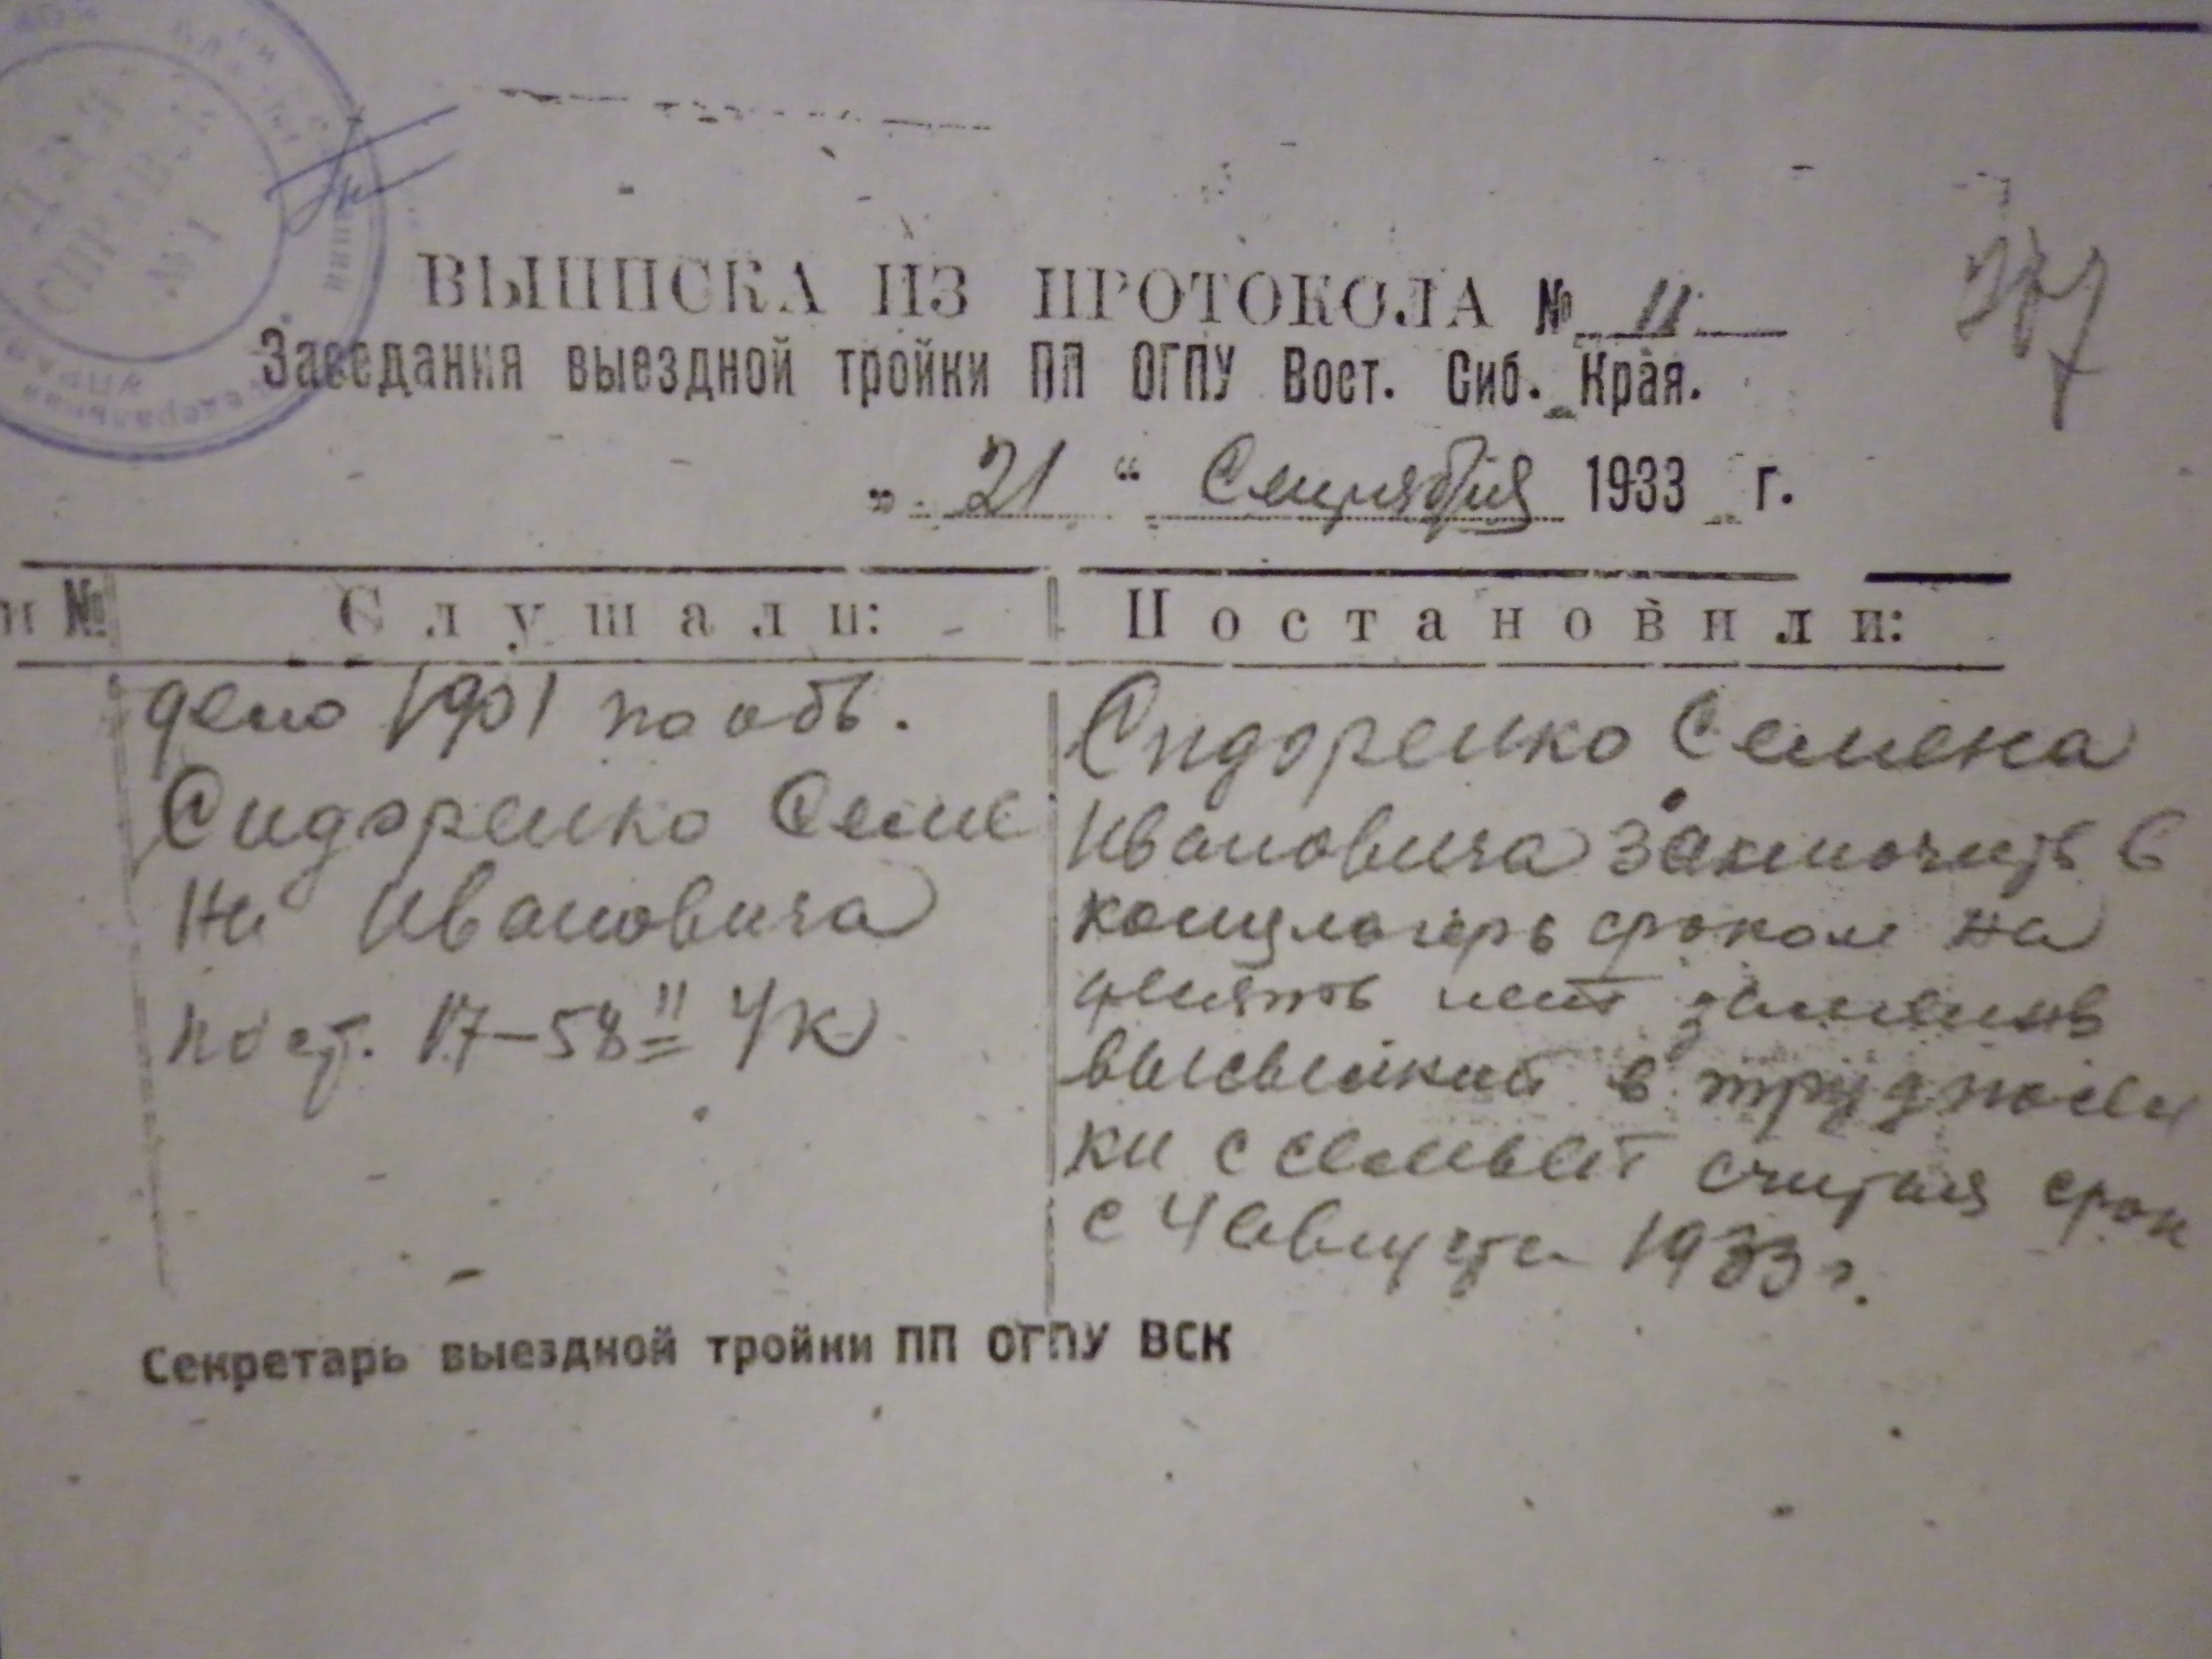 ДЛЯ
СПРАВОК
№1
ВЫПИСКА ИЗ ПРОТОКОЛА № 11
Заседания выездной тройки ПП ОГПУ Вост. Сиб. Края.
„ 21 “ Сентября 1933 г.
№ Слушали: Постановили:
дело 1901 по обв.
Сидоренко Семе
на Ивановича
по ст. 17-58 11 УК
Сидоренко Семена
Ивановича заключить в
концлагерь сроком на
лет заменив
высылкой в трудпосел
ки с семьей считая срок
с 4 августа 1933 г.
Секретарь выездной тройки ПП ОГПУ ВСК